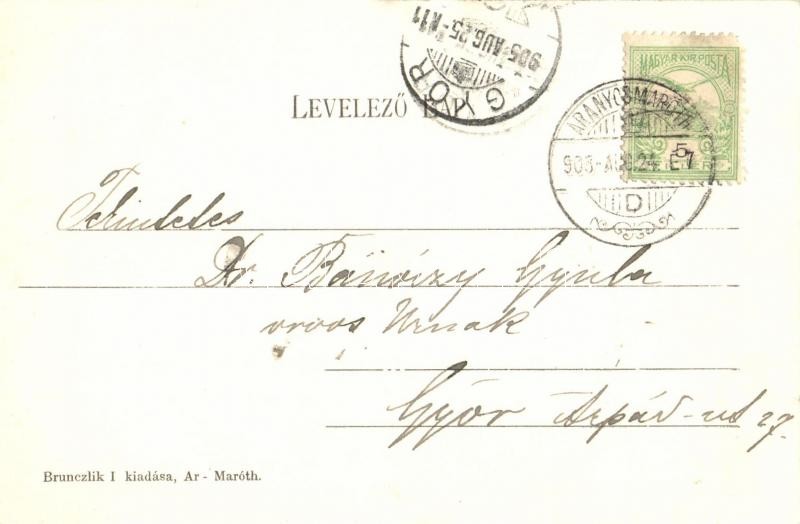 GYŐR
905 AUG. 25-N11
MAGYAR KIR. POSTA
5
ARANYOSMARÓTH
905-AUG. 24. E7
D
LEVELEZŐ LAP
Tekintetes
Dr. Gyula
orvos Urnak
Győr Árpád-út 27.
Brunczlik I kiadása, Ar - Maróth.